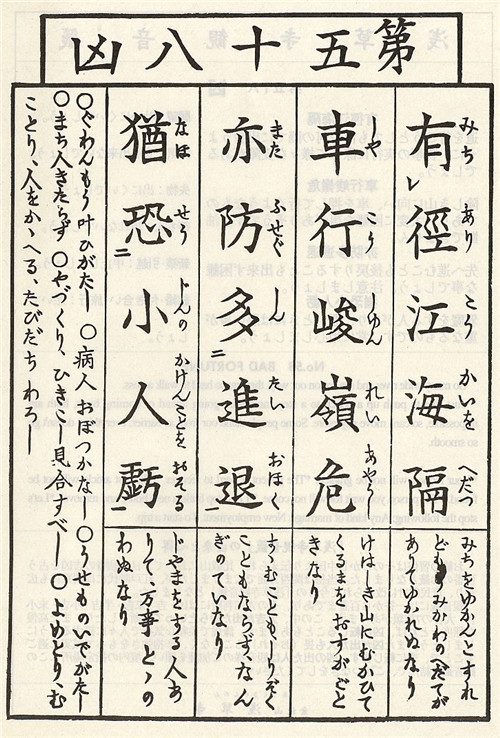 第五十八凶
有徑江海隔
みちありこうかいをへだつ
みちをゆかんとすれ
どもうみかわのへだてが
あつてゆかれぬなり
車行峻嶺危
けはしき山にむかひて
くるまをおすがごと
きなり
亦防多進退
またふせぐしんたいおほく
すすむことも、しりぞく
こともならず、なん
ぎていなり
猶恐小人虧
なほせうじんのかけんことをおそる
じやまをする人あ
りて万事ととの
わぬなり
〇ぐわんもう叶ひがたし 〇病人おぼつかなし 〇うせものいでがたし
〇まち人きたらず 〇やづくり、ひきこし見合すべし 〇よめとり、む
ことり、人をかゝへる、たびだちわろし